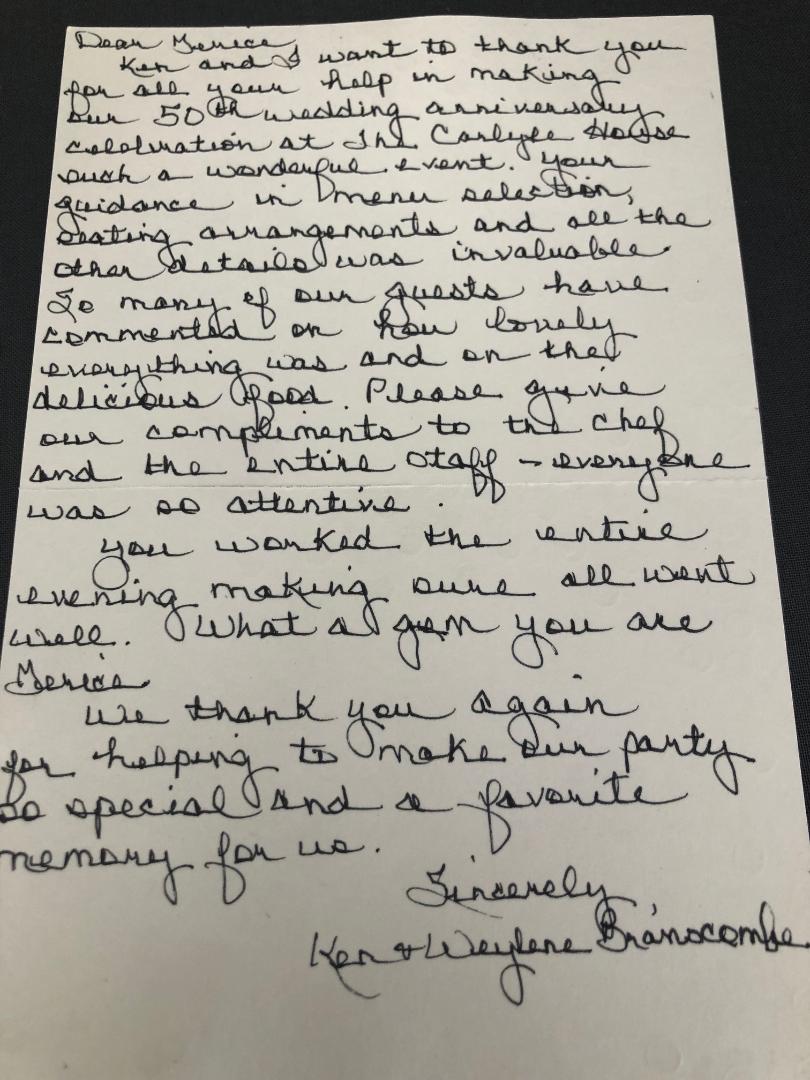 Dear Jerice,
Ken and I want to thank you
for all your help in making
our 50th wedding anniversary
celebration at The Carlyle House
such a wonderful event. Your
guidance in menu selection,
seating arrangements and all the
other details was invaluable.
So many of our guests have
commented on how lovely
everything was and on the
delicious food. Please give
our compliments to the chef
and the entire staff - everyone
was so attentive.
You worked the entire
evening making sure all went
well. What a gem you are
Jerice.
We thank you again
for helping to make our party
so special and a favorite
memory for us.
Sincerely
Ken & Weylene Branscombe